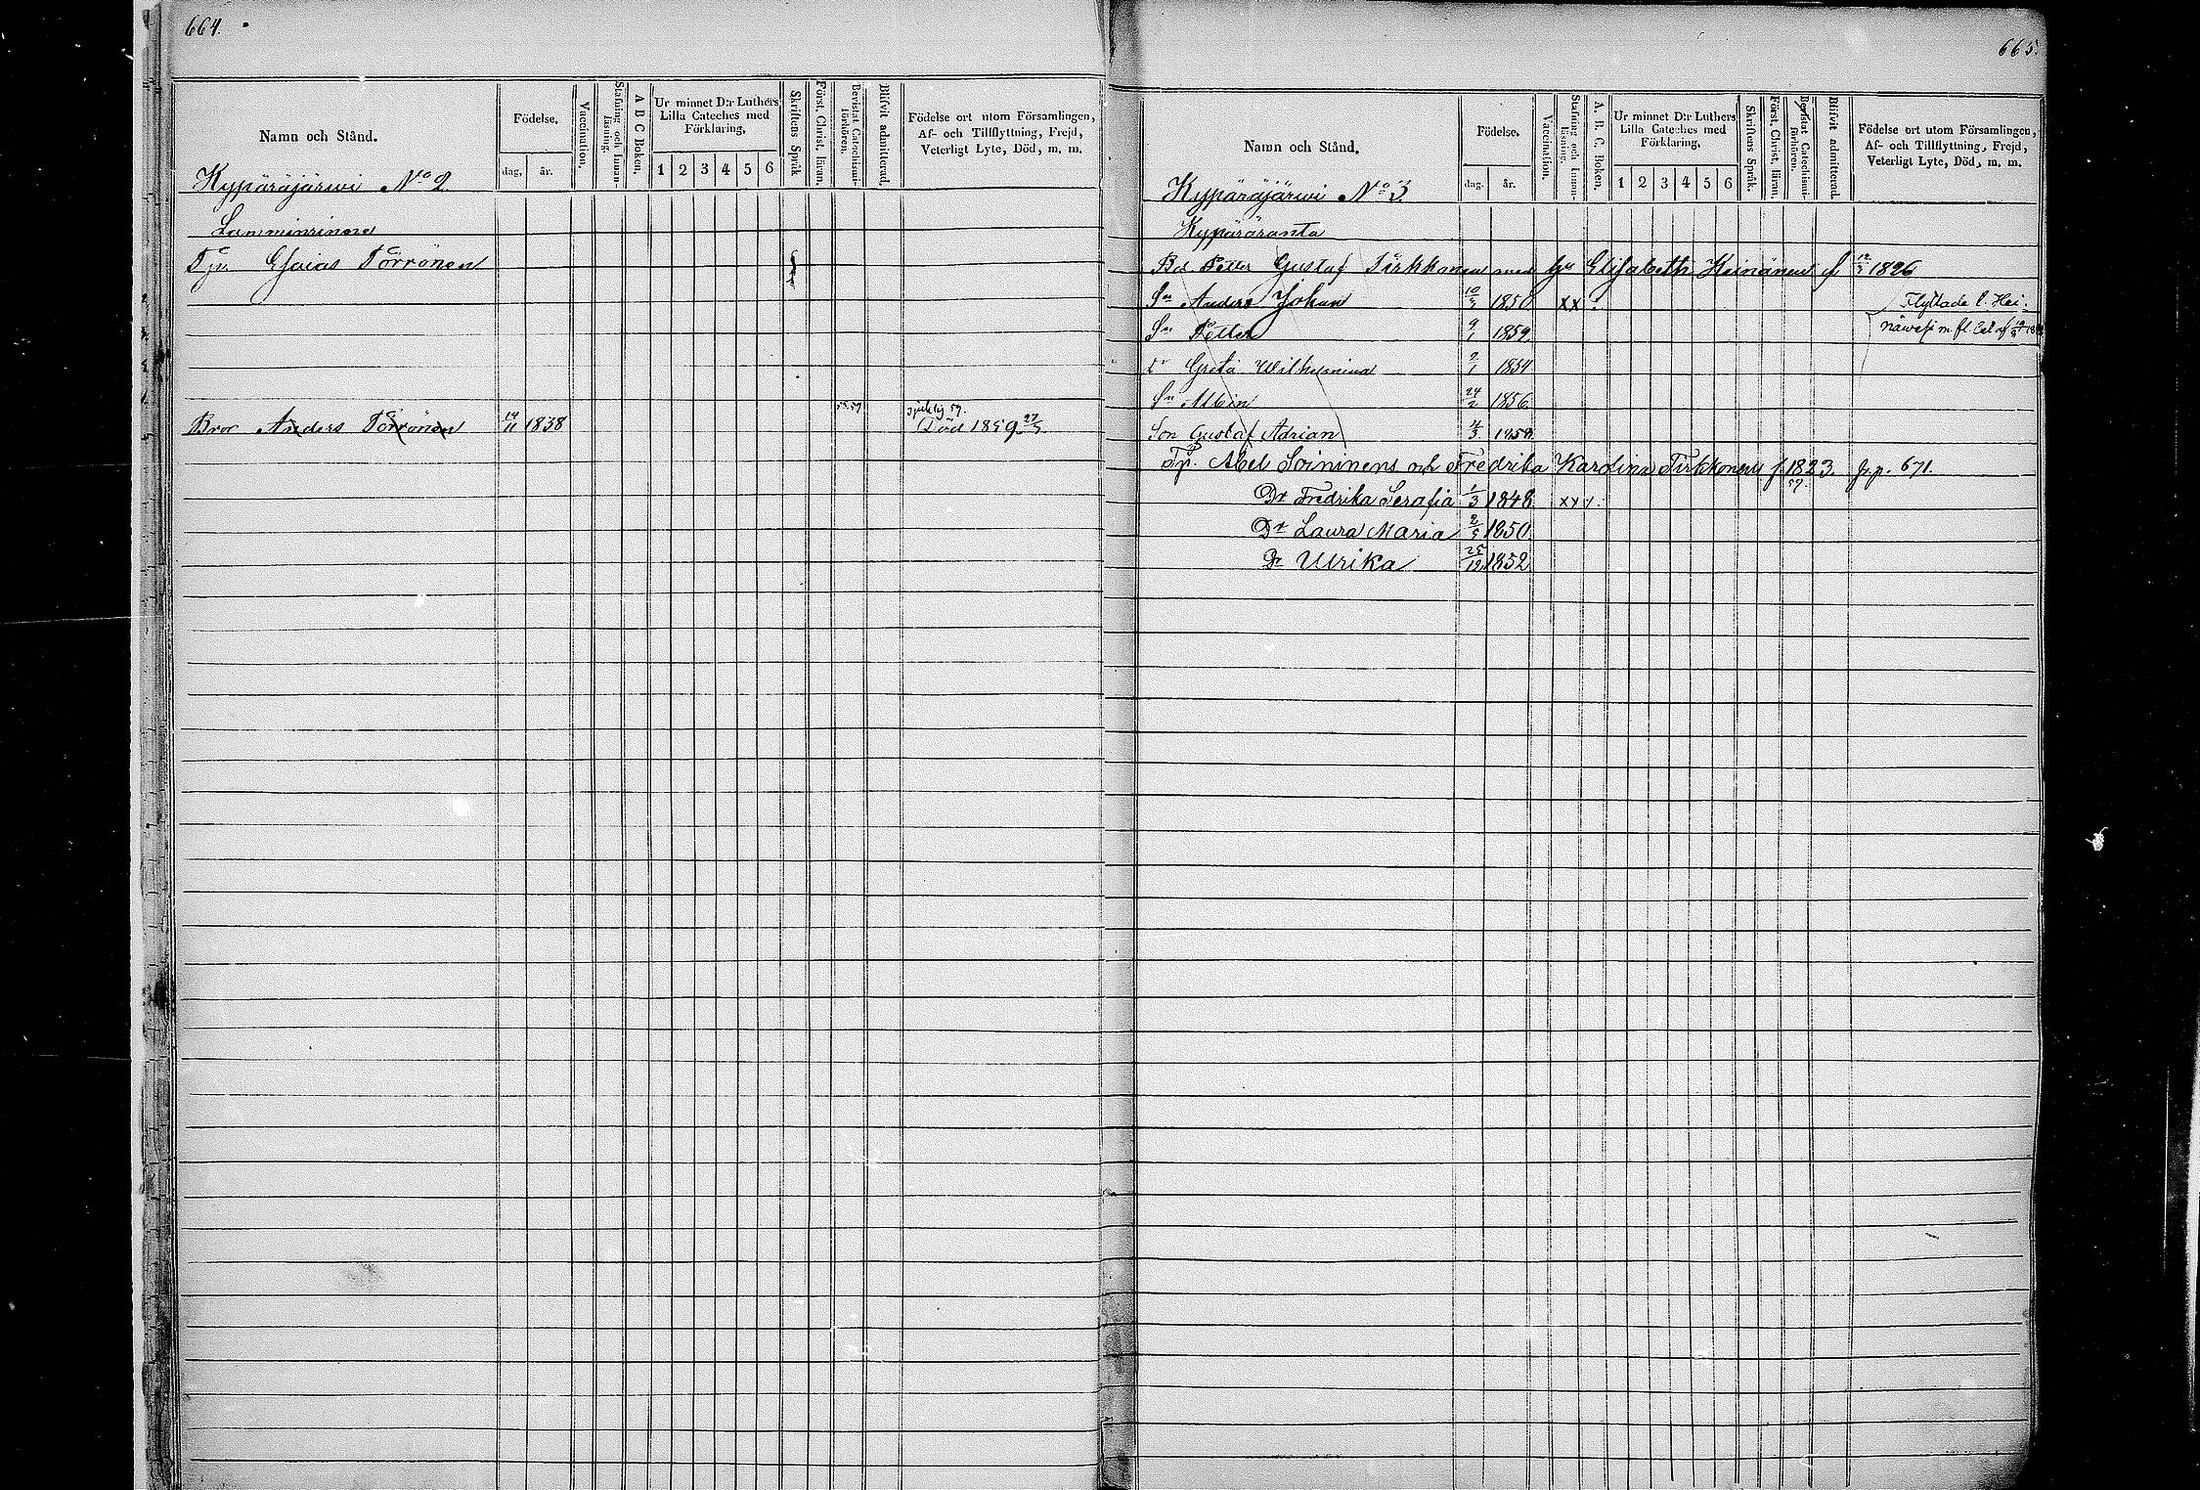 664.
Namn och Stånd.
Födelse.
dag. år.
Vaccination.
Stafning och Innan-läsning.
A B C Boken.
Ur minnet D:r Luthers Lilla Cateches med Förklaring.
1 2 3 4 5 6
Skriftens Språk
Först. Christ. läran.
Bevistat Catechismi-förhören.
Blifvit admitterad.
Födelse ort utom Församlingen, Af- och Tillflyttning, Frejd, Veterligt Lyte, Död, m. m.
Kypäräjärwi No 2.
Tp. Esaias Törrönen
Bror Anders Törrönen 14/11 1838 Död 1859 27/5
665.
Namn och Stånd.
Födelse.
dag. år.
Vaccination.
Stafning och Innan-läsning.
A. B. C. Boken.
Ur minnet D:r Luthers Lilla Cateches med Förklaring.
1 2 3 4 5 6
Skriftens Språk.
Först. Christ. läran.
Bevistat Catechismi-förhören.
Blifvit admitterad.
Födelse ort utom Församlingen, Af- och Tillflyttning, Frejd, Veterligt Lyte, Död, m. m.
Kypäräjärwi No 3.
Kypäräranta
Petter Gustaf Tirkkonen med Elisabeth Keinänen f 12/3 1826
Sn Anders Johan 10/5 1850 xx Flyttade t. Hei-
Sn Petter 9/1 1852 näwesi m fl.
Dr Greta Wilhelmina 2/1 1854
Sn Albin 24/2 1856
Son Gustaf Adrian 4/3 1858
Tp. Abel Soininens och Fredrika Karolina Tirkkonens f. 1823. fr. p. 671.
Dr Fredrika Serafia 1/3 1848 xxx
Dr Laura Maria 2/5 1850
Dr Ulrika 25/12 1852